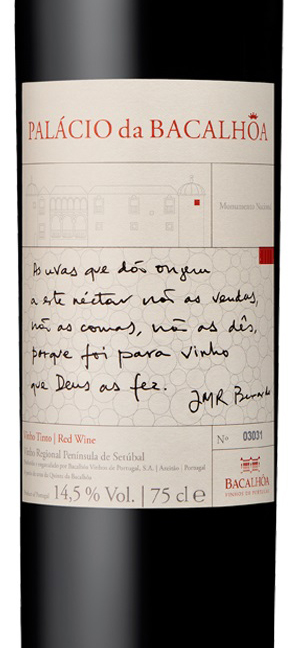 PALÁCIO da BACALHÔA
Monumento
As uvas que dão origem
a este néctar não as vendas,
não as comas, não as dês,
porque foi para vinho
que Deus as fez.
JMR Berardo
Vinho Tinto | Red Wine
Vinho Regional Península de Setúbal
Bacalhôa Vinhos de Portugal, S.A. | Azeitão | Portugal
14,5 % Vol. | 75 cl e
Nº 03031
BACALHÔA
VINHOS DE PORTUGAL